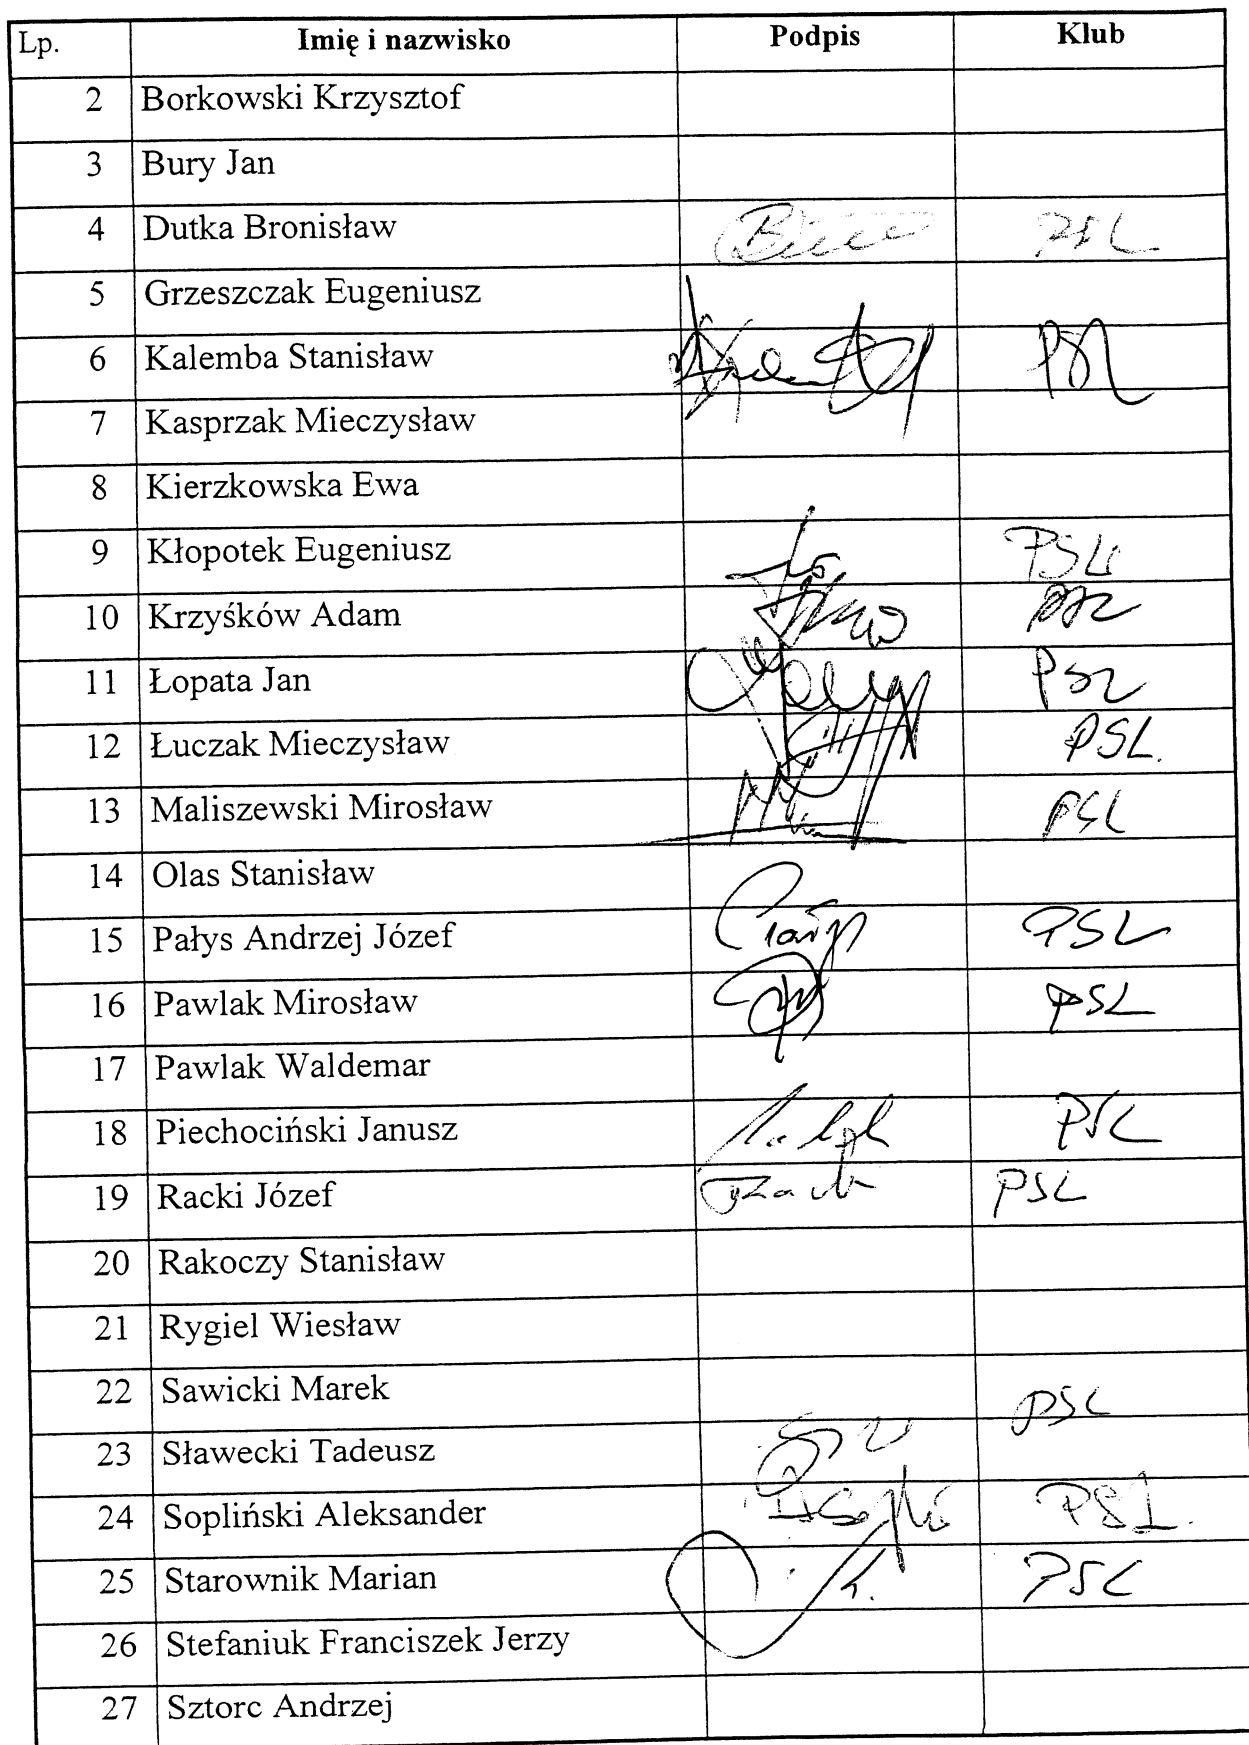 Lp. Imię i nazwisko Podpis Klub
2 Borkowski Krzysztof
3 Bury Jan
4 Dutka Bronisław PSL
5 Grzeszczak Eugeniusz
6 Kalemba Stanisław PSL
7 Kasprzak Mieczysław
8 Kierzkowska Ewa
9 Kłopotek Eugeniusz PSL
10 Krzyśków Adam PSL
11 Łopata Jan PSL
12 Łuczak Mieczysław PSL.
13 Maliszewski Mirosław PSL
14 Olas Stanisław
15 Pałys Andrzej Józef PSL
16 Pawlak Mirosław PSL
17 Pawlak Waldemar
18 Piechociński Janusz PSL
19 Racki Józef PSL
20 Rakoczy Stanisław
21 Rygiel Wiesław
22 Sawicki Marek PSL
23 Sławecki Tadeusz
24 Sopliński Aleksander PSL.
25 Starownik Marian PSL
26 Stefaniuk Franciszek Jerzy
27 Sztorc Andrzej